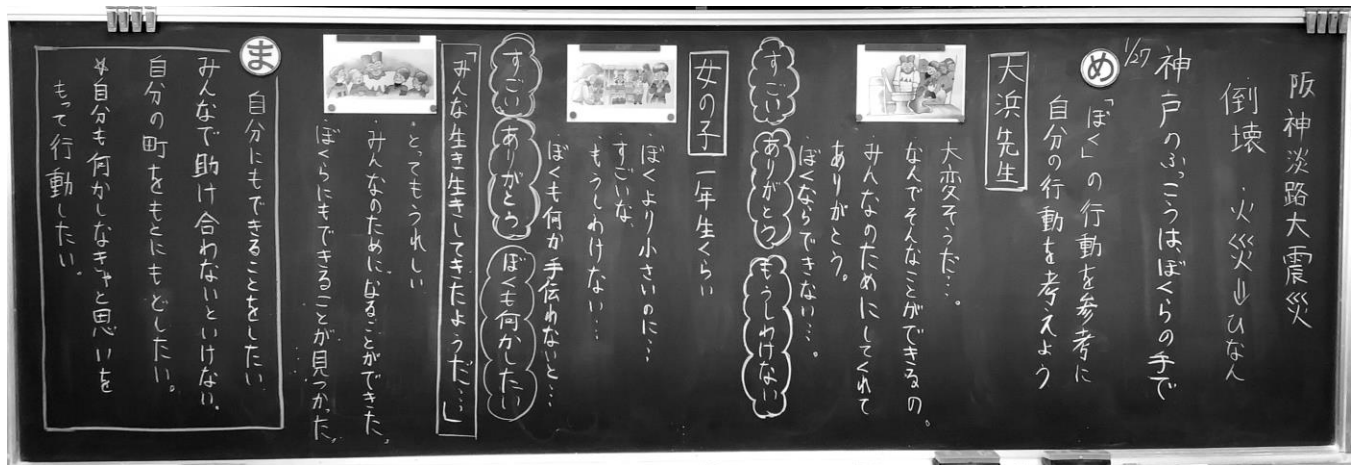 阪神淡路大震災
倒壊 ・火災⇒ひなん
1/27
神戸のふっこうは、ぼくらの手で
め
「ぼく」の行動を参考に
自分の行動を考えよう
大浜先生
大変そうだ…。
なんでそんなことができるの。
みんなのためにしてくれて
ありがとう。
ぼくならできない…。
すごい
ありがとう
もうしわけない
女の子
一年生くらい
ぼくより小さいのに…
すごいな
もうしわけない…
ぼくも何か手伝わないと…
すごい
ありがとう
ぼくも何かしたい
「みんな生き生きしてきたようだ…」
とってもうれしい
みんなのために、なることができた。
ぼくらにもできることが見つかった。
ま
自分にもできることをしたい
みんなで助け合わないといけない。
自分の町をもとにもどしたい。
☆自分も何かしなきゃと思いを
もって行動したい。